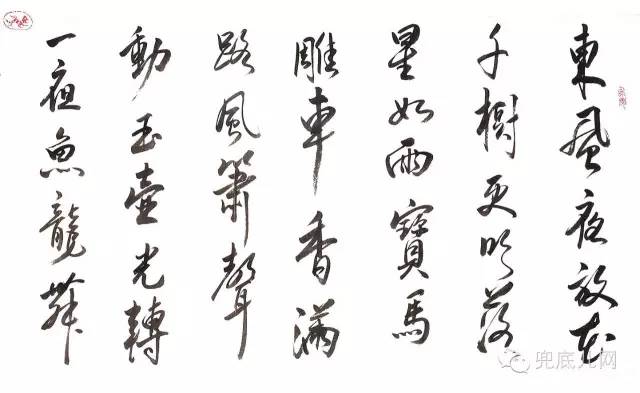 東風夜放花
千樹更吹落
星如雨寶馬
雕車香滿
路風簫聲
動玉壺光轉
一夜魚龍舞
兜底儿网